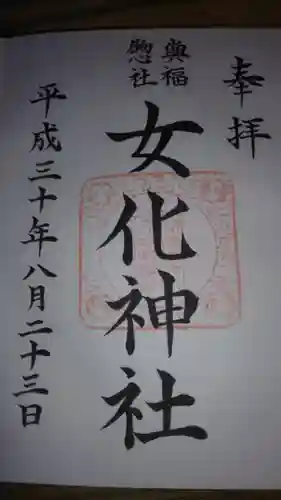 奉拝
興福
惣社
女化神社
平成三十年八月二十三日